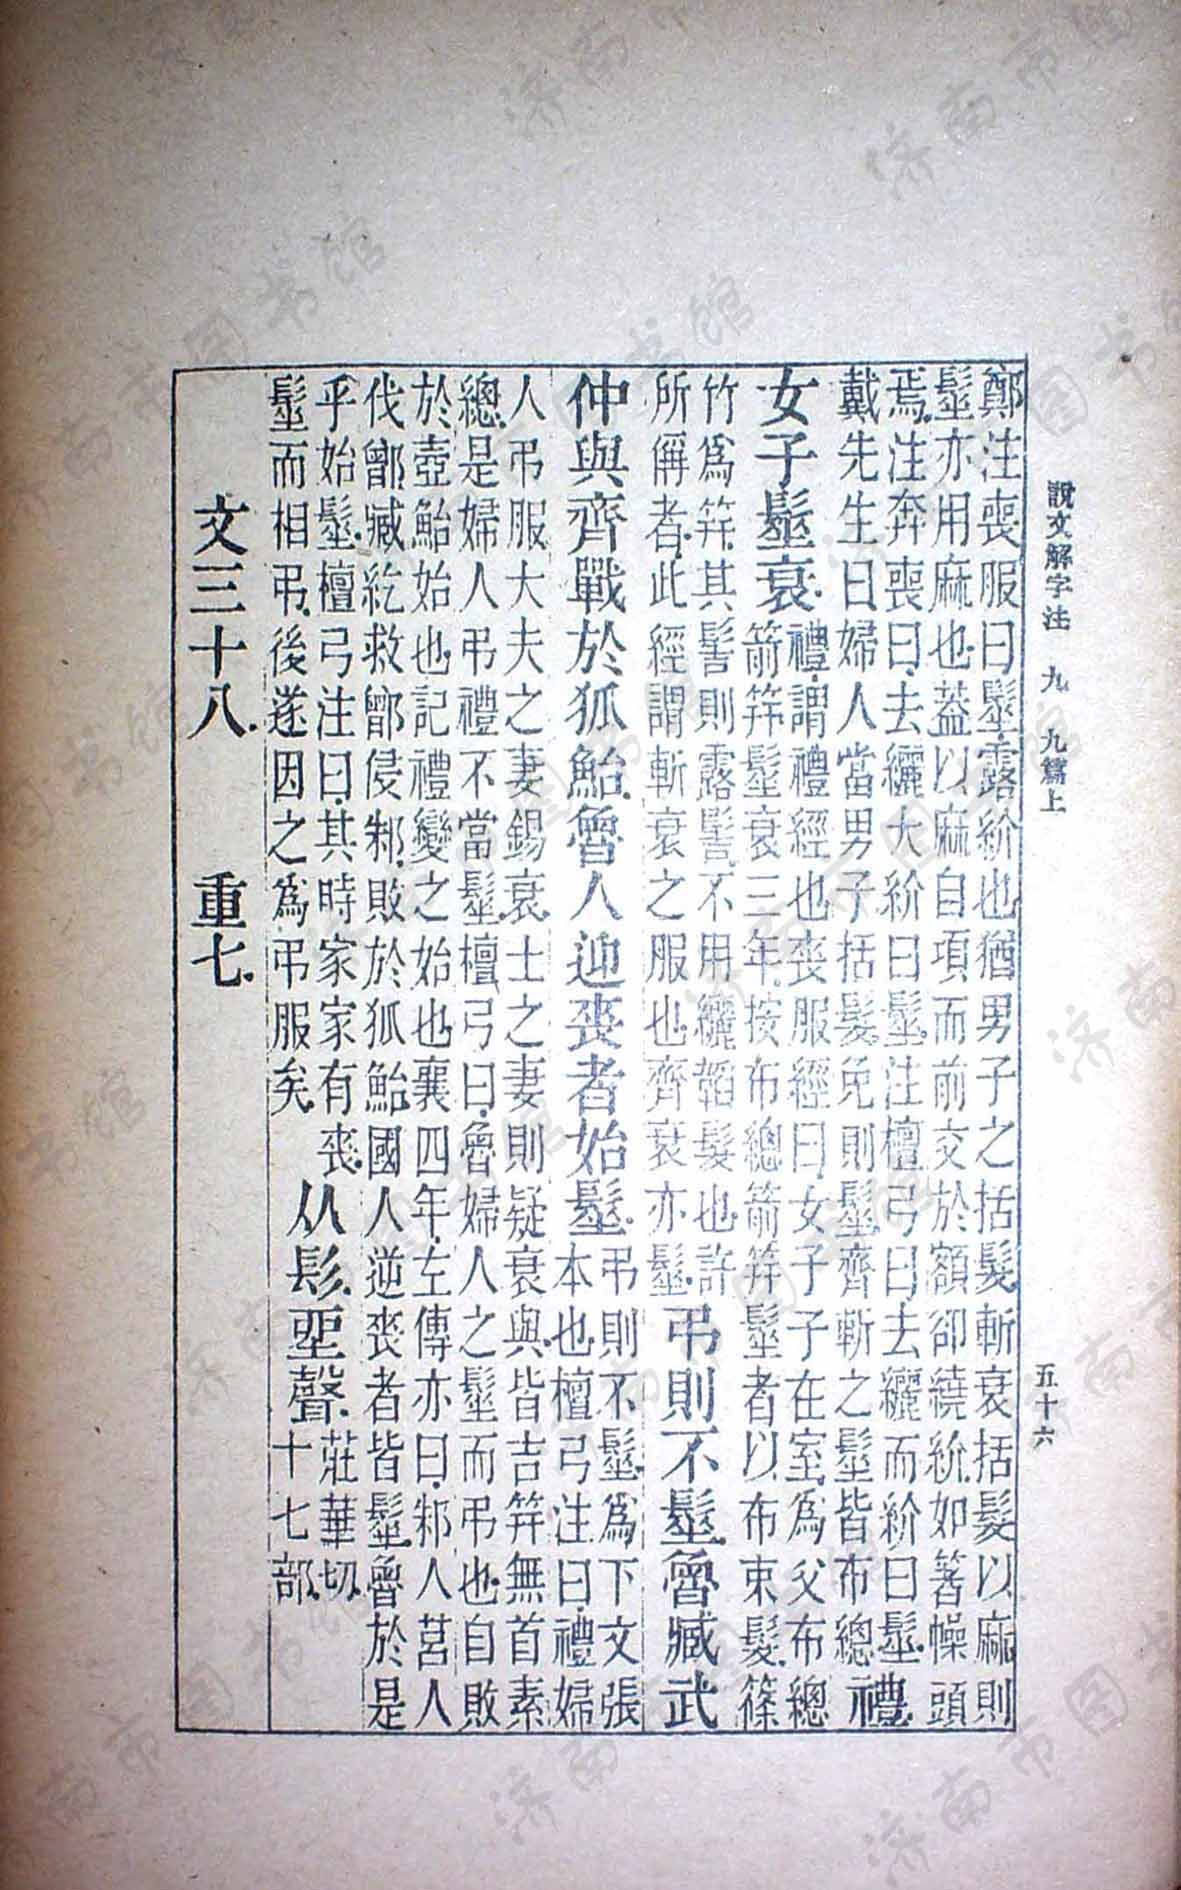 說文解字注　九　九篇上　五十六
鄭注喪服曰髽露紒也猶男子之括髮斬衰括髮以麻則
髽亦用麻也葢以麻自項而前交於額卻繞紒如箸幧頭
焉.注奔喪曰.去纚大紒曰髽.注檀弓曰.去纚而紒曰髽.
戴先生曰婦人當男子括髮免則髽.齊斬之髽皆布總.禮.
女子髽衰.
禮.謂禮經也.喪服經曰.女子子在室.爲父布總
箭笄髽衰三年.按布總箭笄髽者以布束髮.篠
竹爲笄.其髻則露髻.不用纚韜髮也.許
所偁者.此經謂斬衰之服也.齊衰亦髽.
弔則不髽.魯臧武
仲與齊戰於狐鮐.魯人迎喪者始髽.
弔則不髽.爲下文張
本也.檀弓注曰.禮婦
人弔服大夫之妻錫衰.士之妻則疑衰與.皆吉笄無首素
總.是婦人弔禮不當髽.檀弓曰.魯婦人之髽而弔也.自敗
於壺鮐始也.記禮變之始也.襄四年.左傳亦曰.邾人莒人
伐鄫.臧紇救鄫侵邾.敗於狐鮐.國人逆喪者皆髽.魯於是
乎始髽.檀弓注曰.其時家家有喪.
髽而相弔.後遂因之爲弔服矣.
从髟.坐聲.
莊華切.
十七部.
文三十八.　重七.